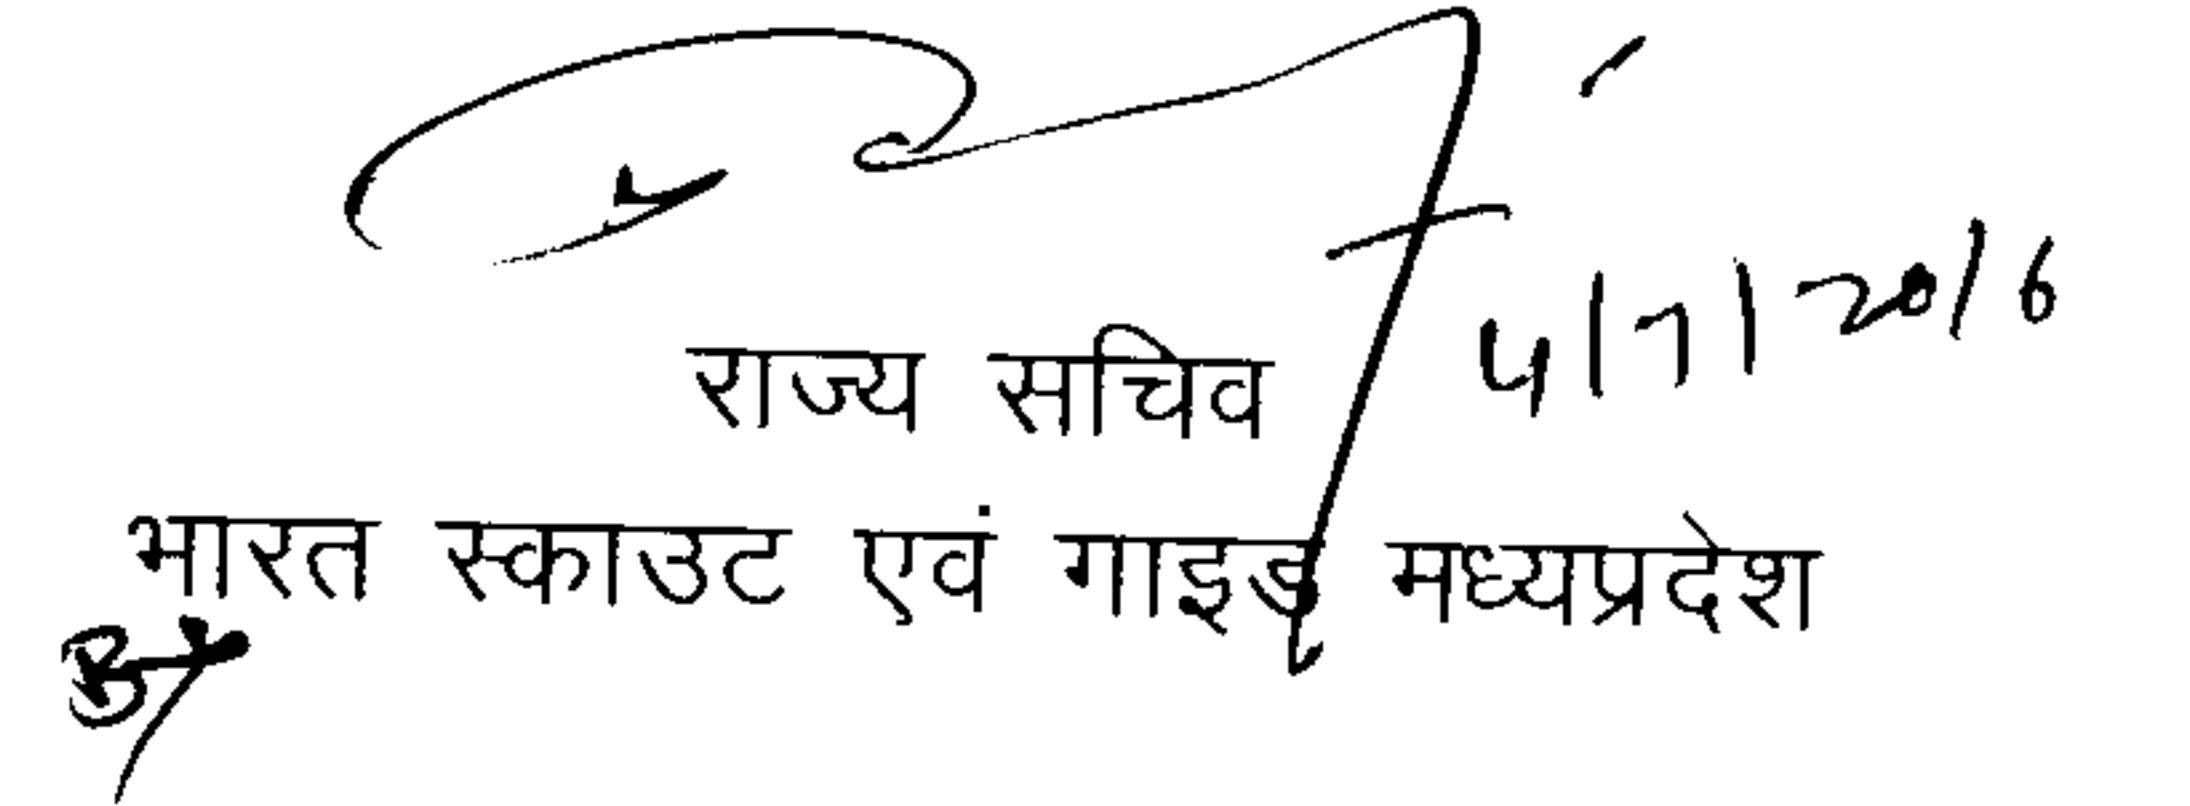 4/7/2016
राज्य सचिव
भारत स्काउट एवं गाइड मध्यप्रदेश